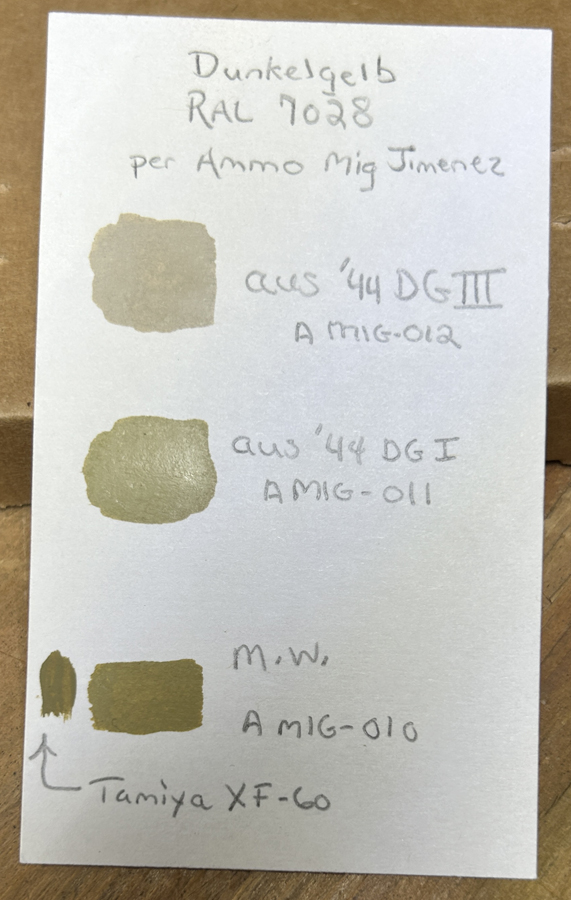 Dunkelgelb
RAL 7028
per Ammo Mig Jimenez
aus '44 DG III
A MIG-012
aus '44 DG I
A MIG-011
M.W.
A MIG-010
Tamiya XF-60